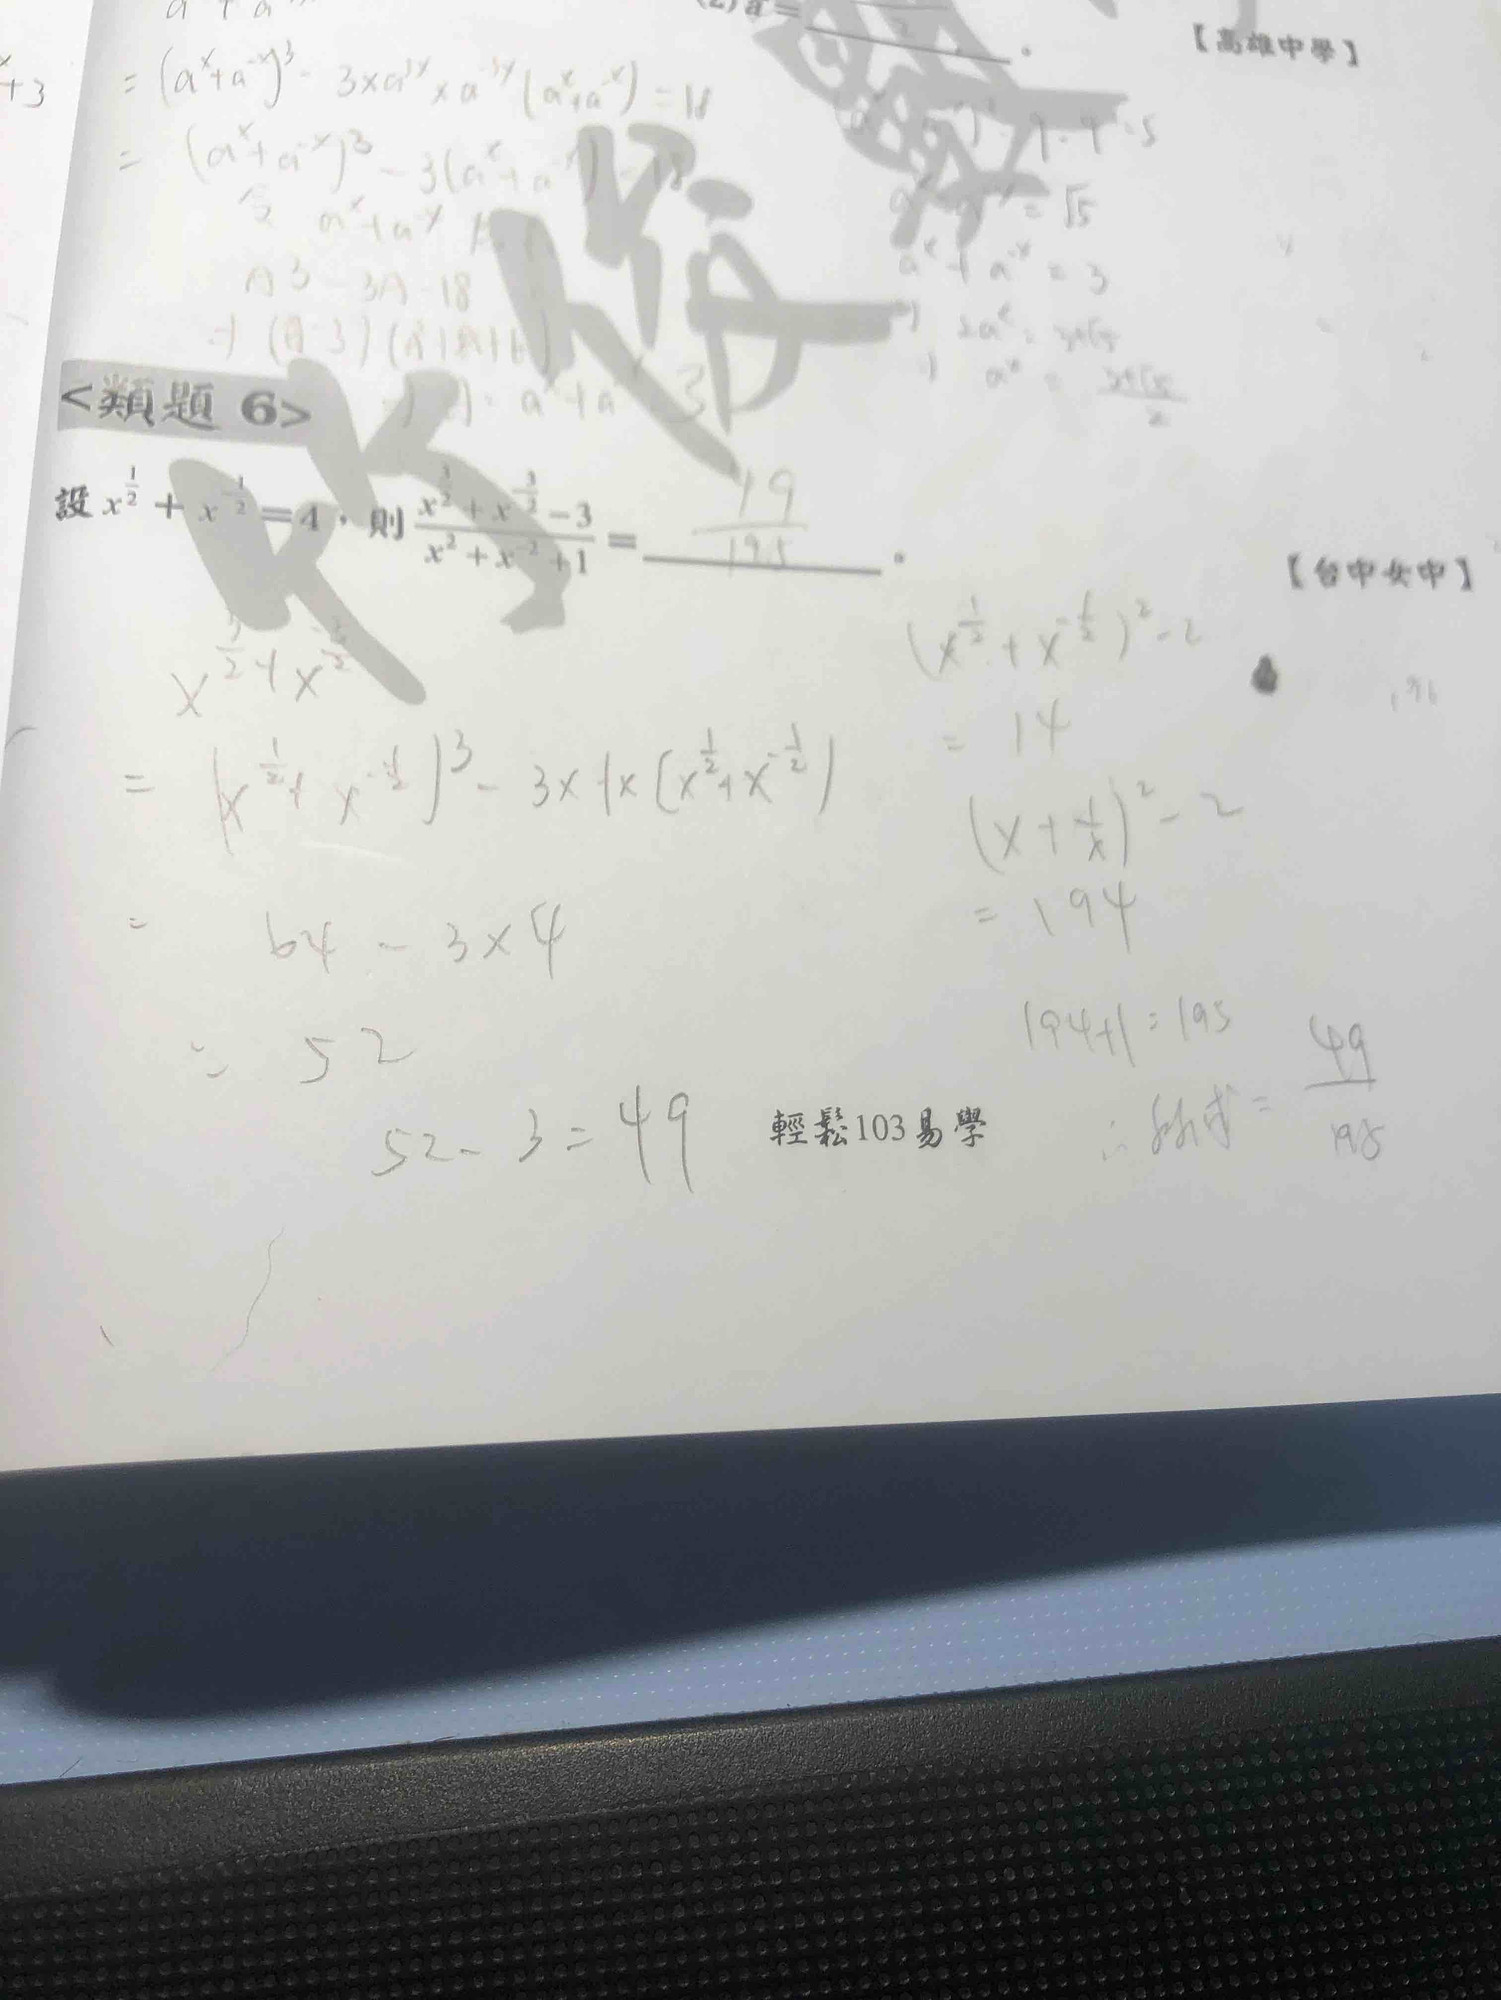 (2) a =
【高雄中學】
+3
= (aˣ+a⁻ˣ)³ - 3×a³ˣ×a⁻³ˣ(aˣ+a⁻ˣ) = 18
= (aˣ+a⁻ˣ)³ - 3(aˣ+a⁻ˣ) = 18
令 aˣ+a⁻ˣ
A³ - 3A - 18
9-4=5
= √5
aˣ + a⁻ˣ = 3
<類題 6>
設 x^{1/2} + x^{-1/2} = 4，則 \frac{x^{3/2} + x^{-3/2} - 3}{x^2 + x^{-2} + 1} = 49/195 。
【台中女中】
x^{3/2} + x^{-3/2}
= (x^{1/2} + x^{-1/2})³ - 3×1×(x^{1/2} + x^{-1/2})
= 64 - 3×4
= 52
52 - 3 = 49
(x^{1/2} + x^{-1/2})² - 2
= 14
(x + 1/x)² - 2
= 194
194+1 = 195
∴ 所求 = 49/195
輕鬆103易學